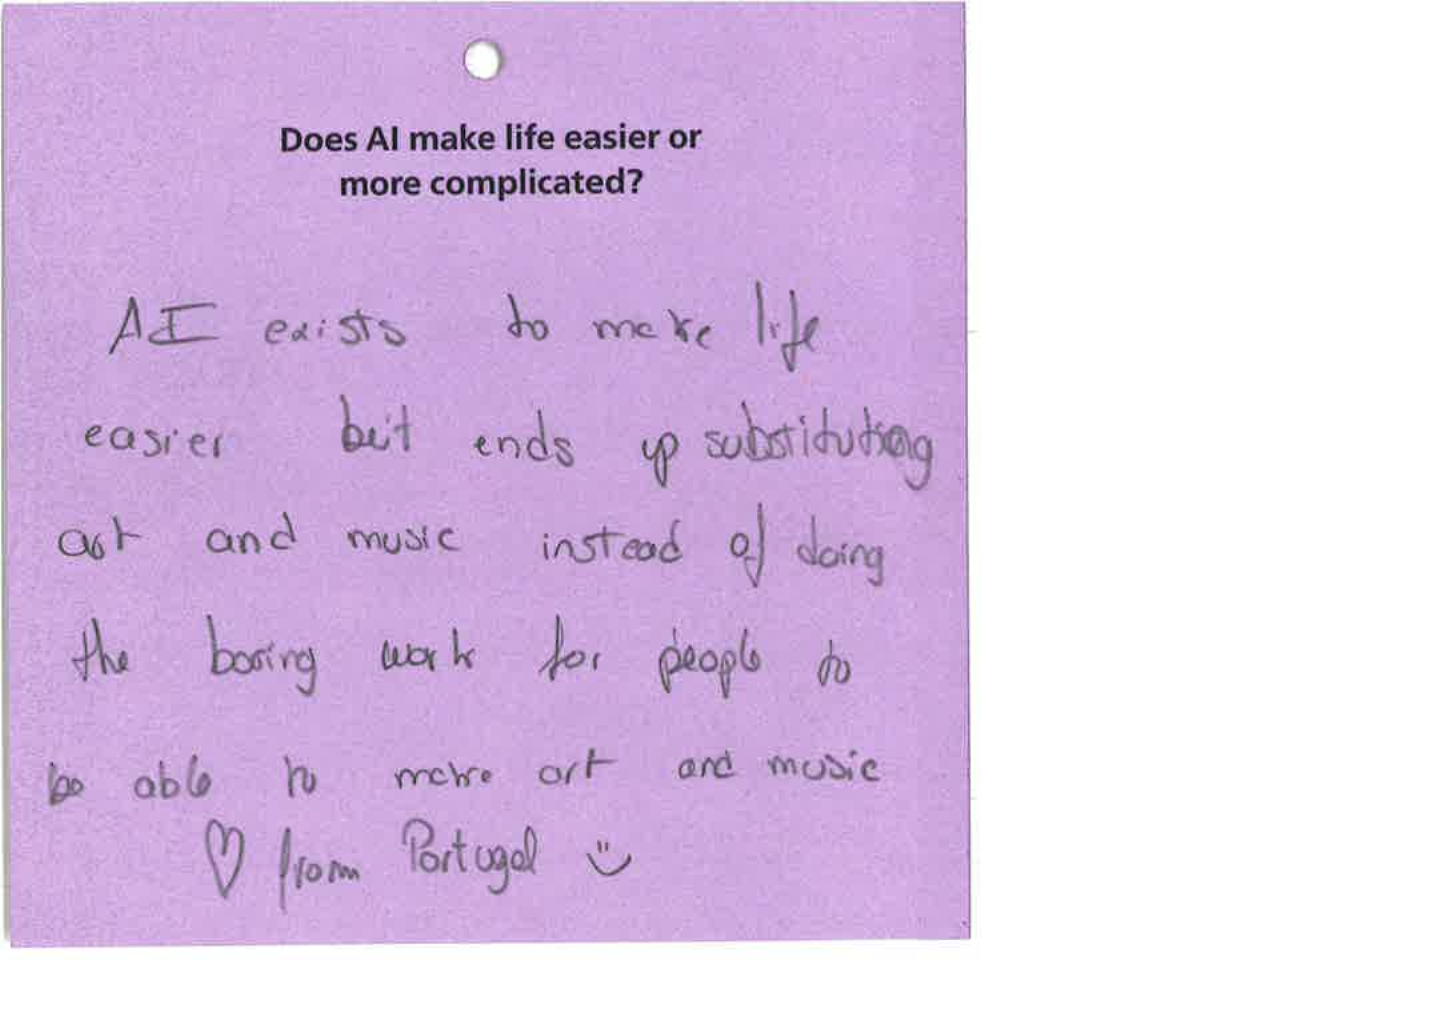 Does AI make life easier or
more complicated?
AI exists to make life
easier but ends up substituting
art and music instead of doing
the boring work for people to
be able to make art and music
♡ from Portugal ü